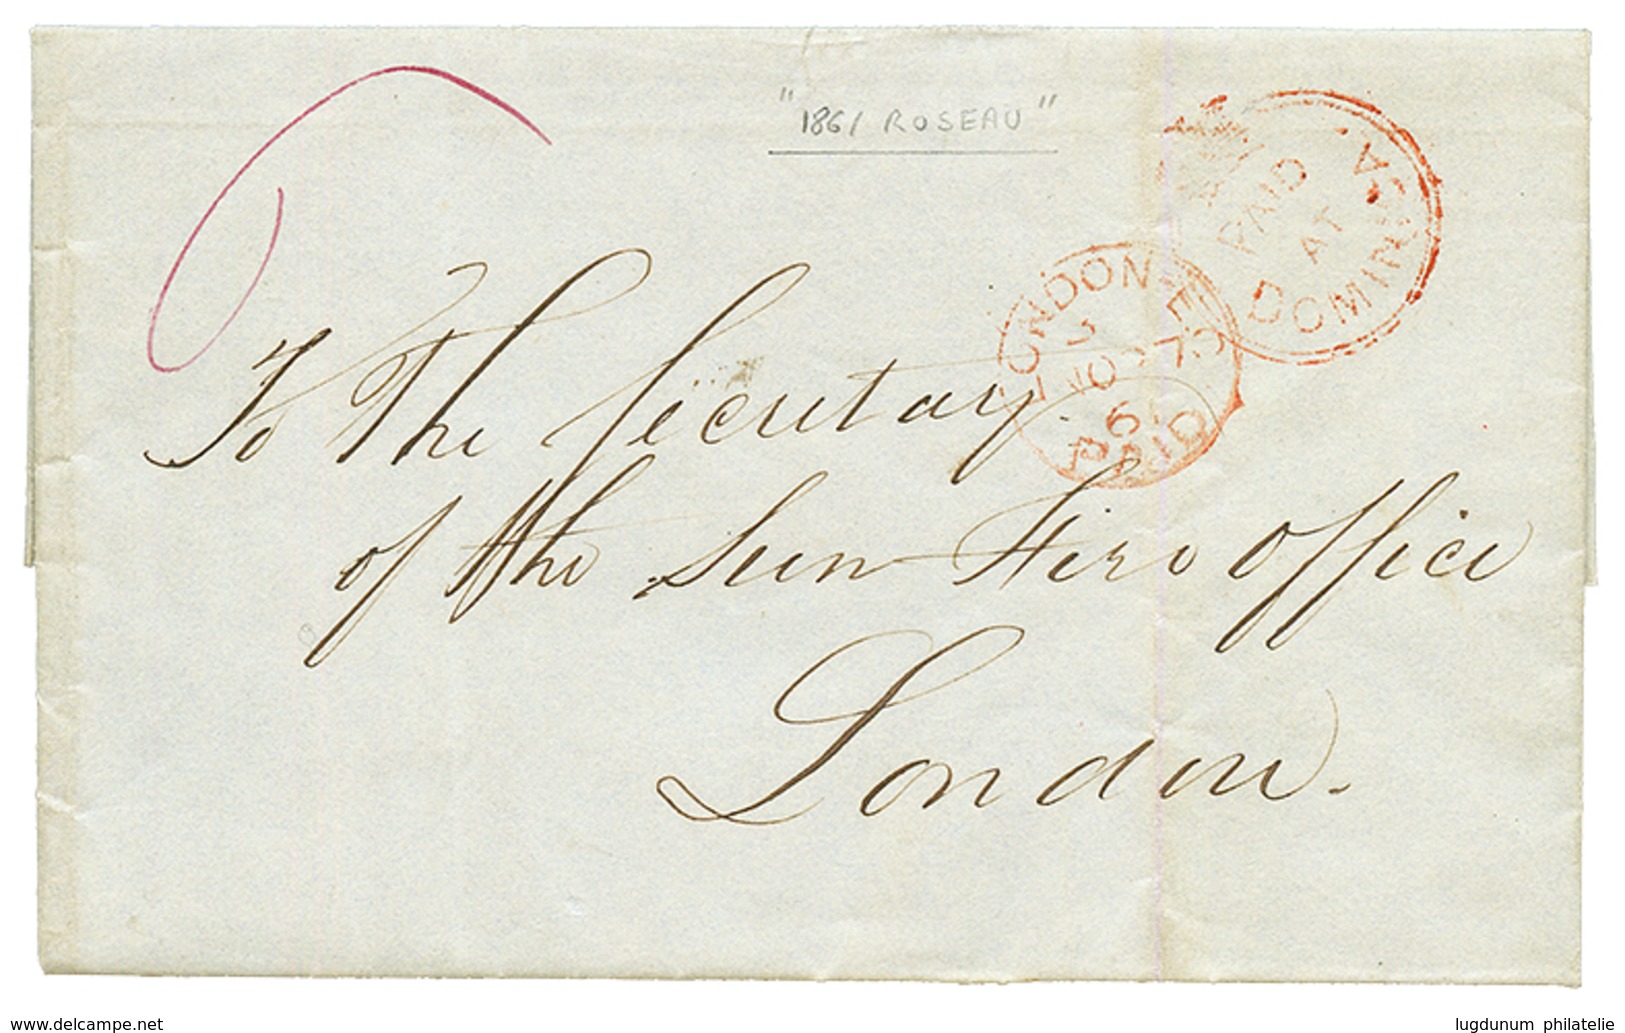 "1861 ROSEAU"
PAID
AT
DOMINICA
LONDON E.C
PAID
6
To The Secretary
of the Sun Fire Office
London.
delcampe.net
lugdunum philatelie